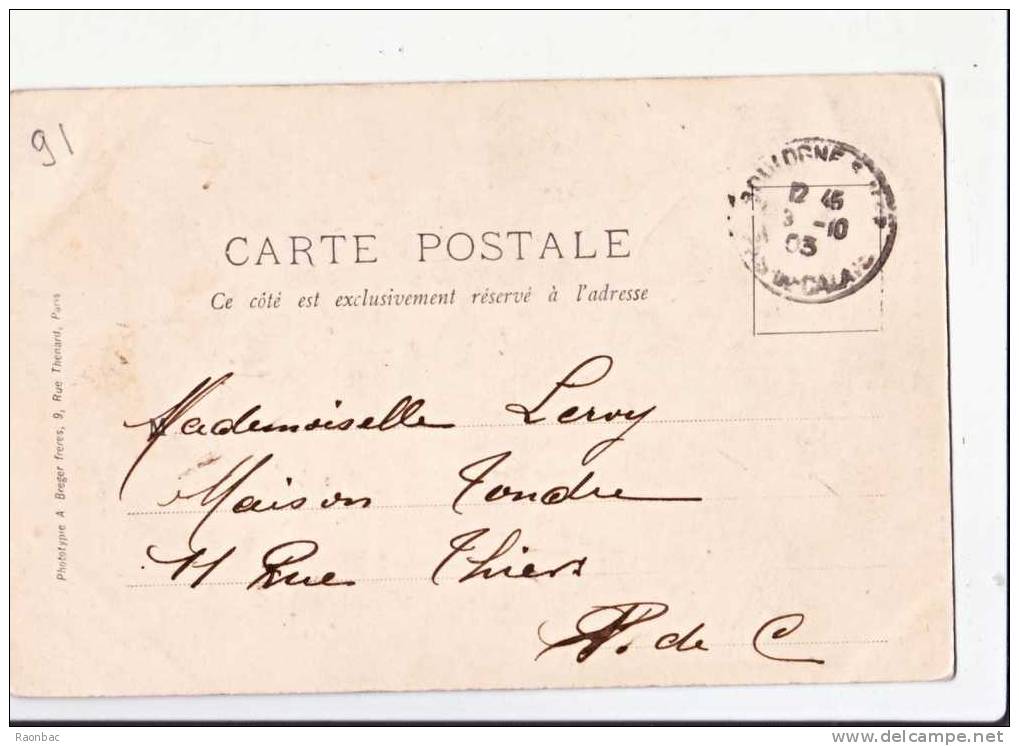 91
CARTE POSTALE
Ce côté est exclusivement réservé à l'adresse
BOULOGNE S MER
12 45
3 -10
03
PAS-DE-CALAIS
Phototypie A Breger freres, 9, Rue Thenard, Paris
Mademoiselle Leroy
Maison Tondre
11 Rue Thiers
P. de C
Raonbac
www.delcampe.net